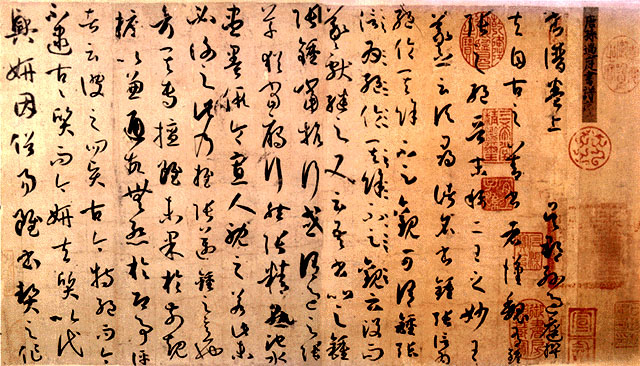 書譜卷上 吳郡孫過庭撰
夫自古之善書者漢魏有鍾
張之絕晉末稱二王之妙王
羲之云頃尋諸名書鍾張信為
絕倫其餘不足觀可謂鍾張
信為絕倫其餘不足觀云沒而
羲獻繼之又云吾書比之鍾
張鍾當抗行或謂過之張
草猶當鴈行然張精熟池水
盡墨假令寡人耽之若此未
必謝之此乃推張邁鍾之意也
考其專擅雖未果於前規
摭以兼通故無慙於即事評
者云彼之四賢古今特絕而今
不逮古古質而今妍夫質以代
興妍因俗易雖書契之作